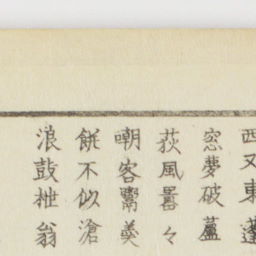 西又東蓬
窓夢破蘆
荻風噐々
嘲客鬻羮
餅不似滄
浪鼓枻翁